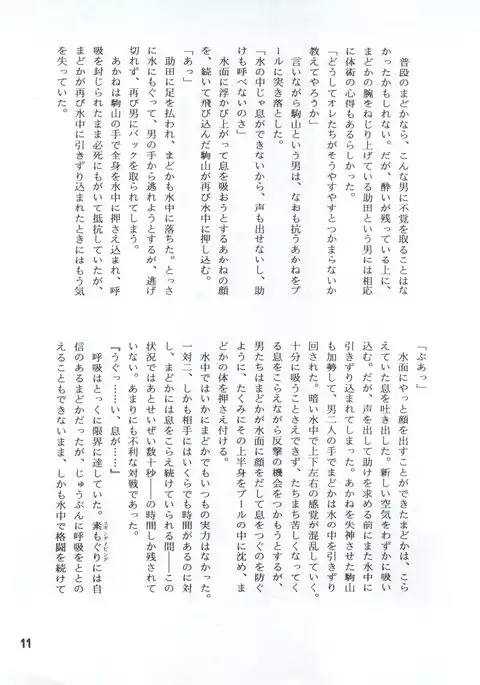 普段のまどかなら、こんな男に不覚を取ることはな
かったかもしれない。だが、酔いが残っている上に、
まどかの腕をねじり上げている助田という男には相応
に体術の心得もあるらしかった。
「どうしてオレたちがそうやすやすとつかまらないか
教えてやろうか」
　言いながら駒山という男は、なおも抗うあかねをプ
ールに突き落とした。
「水の中じゃ息ができないから、声も出せないし、助
けも呼べないのさ」
　水面に浮かび上がって息を吸おうとするあかねの顔
を、続いて飛び込んだ駒山が再び水中に押し込む。
「あっ」
　助田に足を払われ、まどかも水中に落ちた。とっさ
に水にもぐって、男の手から逃れようとするが、逃げ
切れず、再び男にバックを取られてしまう。
　あかねは駒山の手で全身を水中に押さえ込まれ、呼
吸を封じられたまま必死にもがいて抵抗していたが、
まどかが再び水中に引きずり込まれたときにはもう気
を失っていた。
「ぶあっ」
　水面にやっと顔を出すことができたまどかは、こら
えていた息を吐き出した。新しい空気をわずかに吸い
込む。だが、声を出して助けを求める前にまた水中に
引きずり込まれてしまった。あかねを失神させた駒山
も加勢して、男二人の手でまどかは水の中を引きずり
回された。暗い水中で上下左右の感覚が混乱していく。
十分に吸うことさえできず、たちまち苦しくなってく
る息をこらえながら反撃の機会をつかもうとするが、
男たちはまどかが水面に顔をだして息をつぐのを防ぐ
ように、たくみにその上半身をプールの中に沈め、ま
どかの体を押さえ付ける。
　水中ではいかにまどかでもいつもの実力はなかった。
一対二、しかも相手にはいくらでも時間があるのに対
し、まどかには息をこらえ続けていられる間――この
状況ではあとせいぜい数十秒――の時間しか残されて
いない。あまりにも不利な対戦であった。
『うぐっ……い、息が……』
　呼吸はとっくに限界に達していた。素もぐりには自
信のあるまどかだったが、じゅうぶんに呼吸をととの
えることもできないまま、しかも水中で格闘を続けて
11